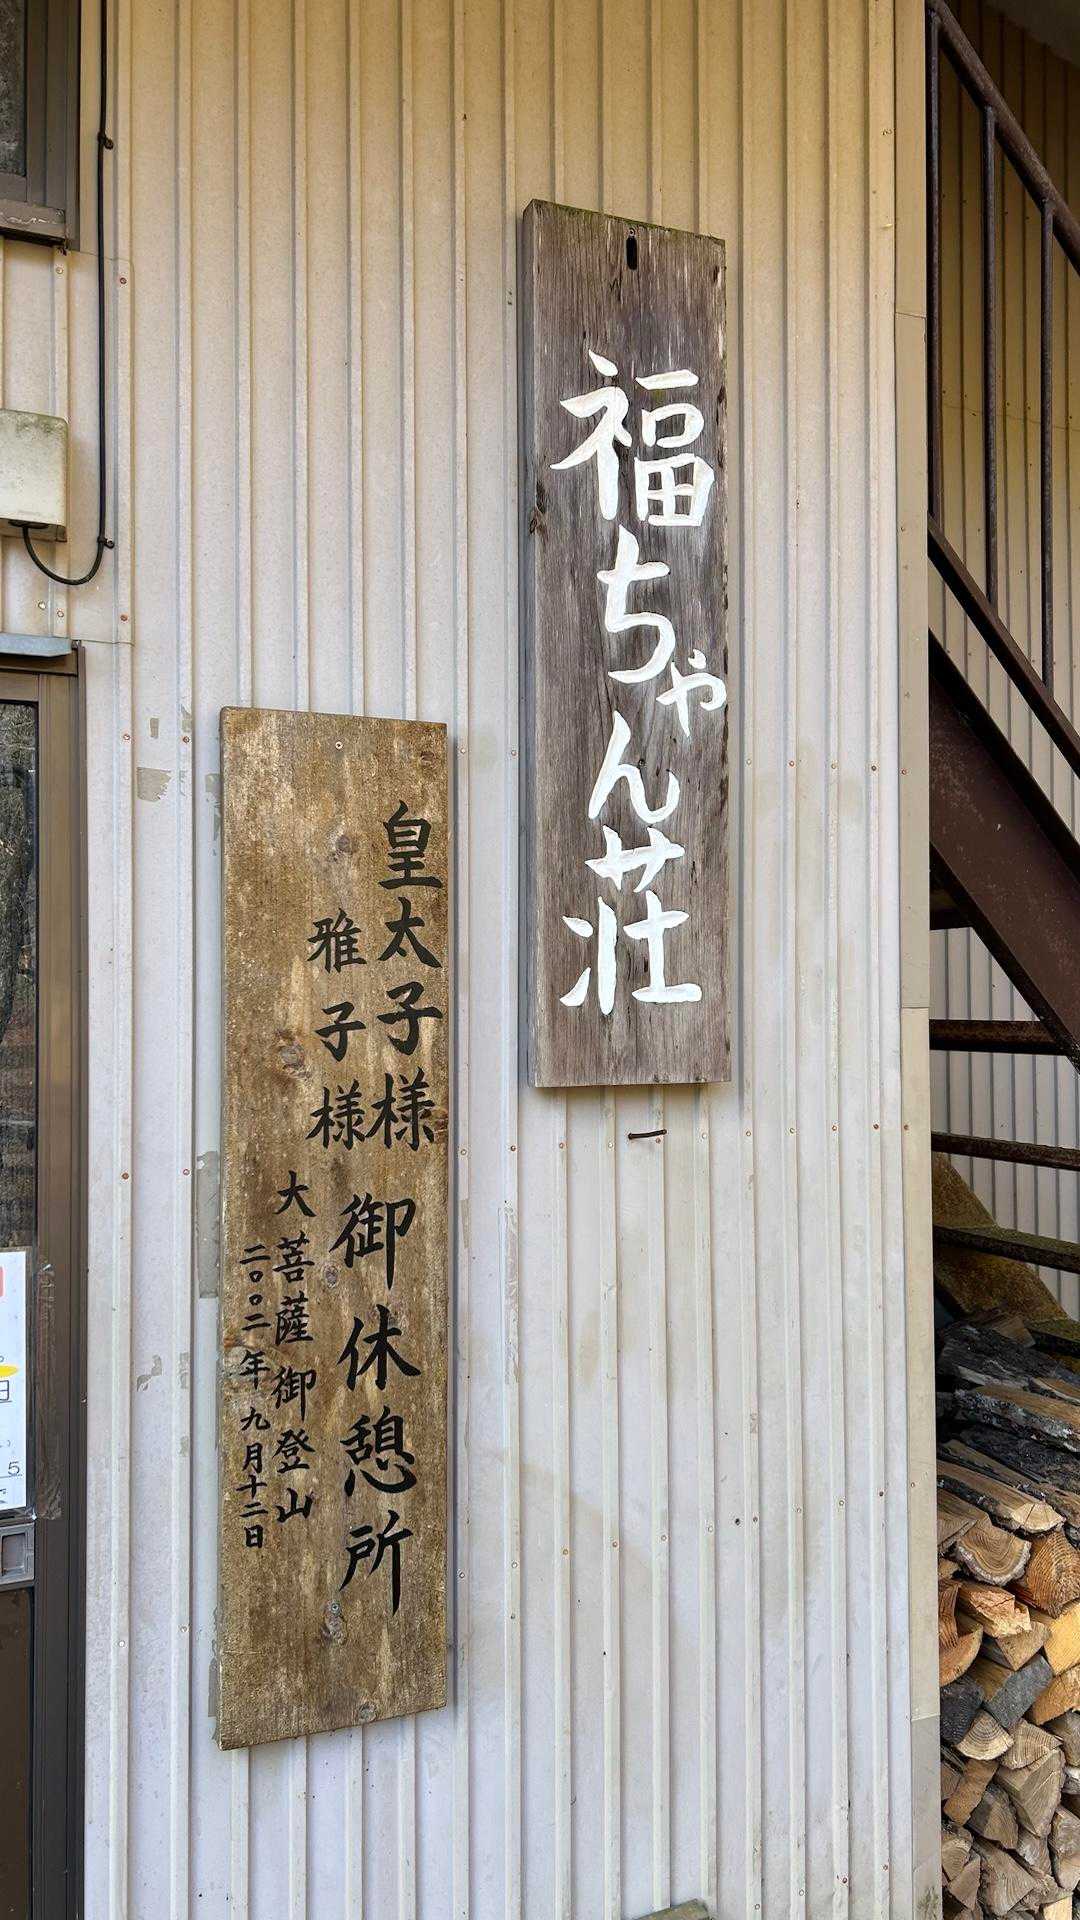 福ちゃん荘
皇太子様
雅子様
御休憩所
大菩薩御登山
二〇〇二年九月十二日